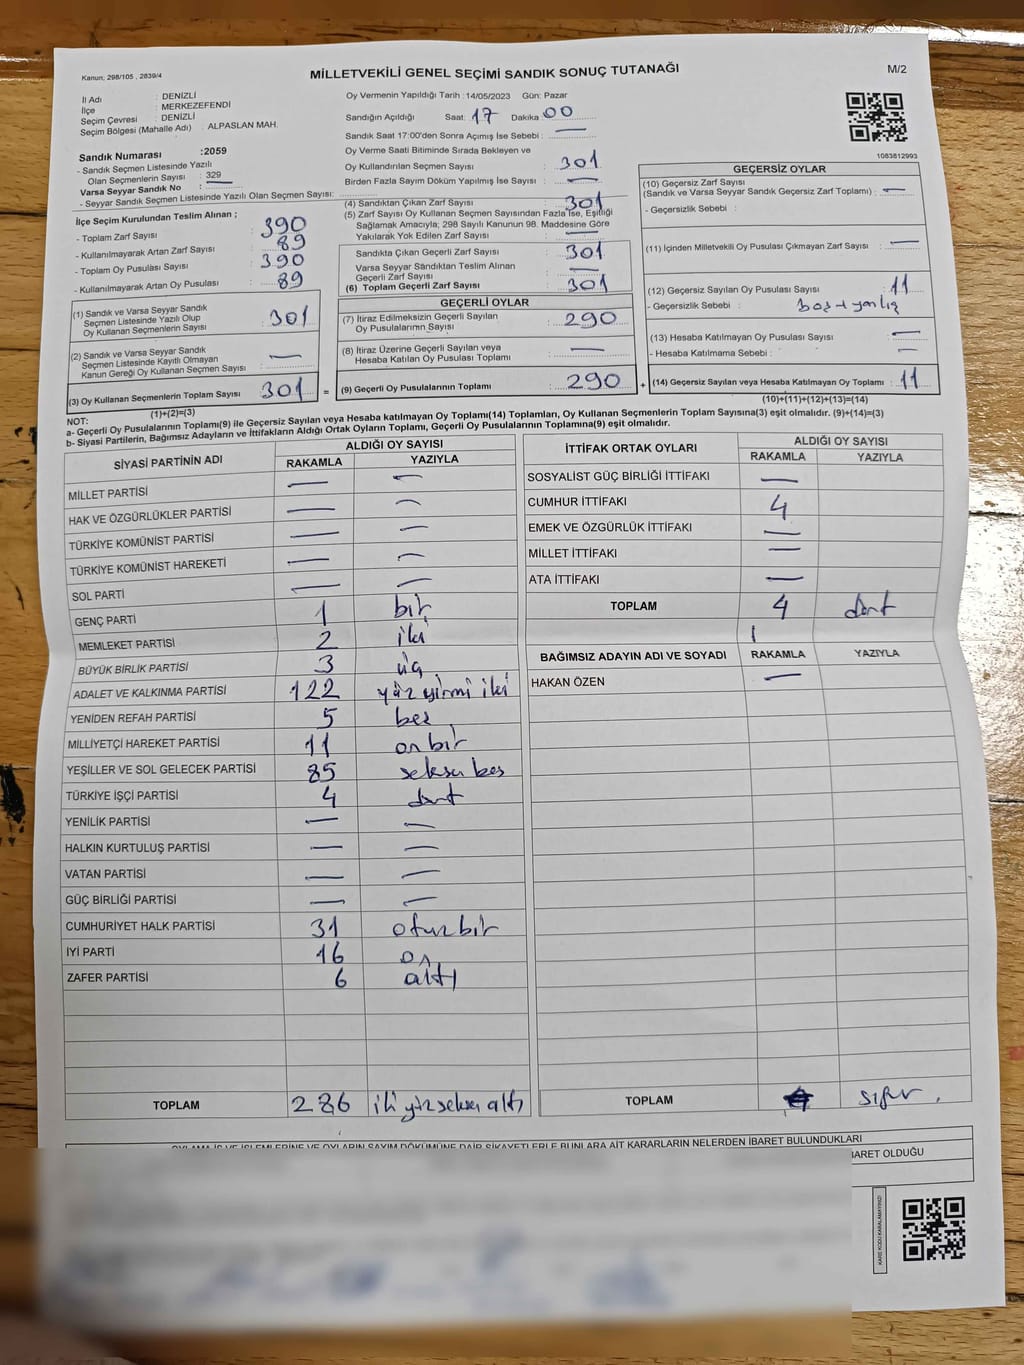 Kanun; 298/105 , 2839/4
MİLLETVEKİLİ GENEL SEÇİMİ SANDIK SONUÇ TUTANAĞI
M/2
İl Adı : DENİZLİ
İlçe : MERKEZEFENDİ
Seçim Çevresi : DENİZLİ
Seçim Bölgesi (Mahalle Adı) : ALPASLAN MAH.
Sandık Numarası :2059
- Sandık Seçmen Listesinde Yazılı
Olan Seçmenlerin Sayısı : 329
Varsa Seyyar Sandık No : —
- Seyyar Sandık Seçmen Listesinde Yazılı Olan Seçmen Sayısı:
Oy Vermenin Yapıldığı Tarih : 14/05/2023 Gün: Pazar
Sandığın Açıldığı Saat: 17 Dakika 00
Sandık Saat 17:00'den Sonra Açımış İse Sebebi : —
Oy Verme Saati Bitiminde Sırada Bekleyen ve
Oy Kullandırılan Seçmen Sayısı : 301
Birden Fazla Sayım Döküm Yapılmış İse Sayısı : —
1083812993
İlçe Seçim Kurulundan Teslim Alınan ;
- Toplam Zarf Sayısı : 390
- Kullanılmayarak Artan Zarf Sayısı : 89
- Toplam Oy Pusulası Sayısı : 390
- Kullanılmayarak Artan Oy Pusulası : 89
(1) Sandık ve Varsa Seyyar Sandık
Seçmen Listesinde Yazılı Olup
Oy Kullanan Seçmenlerin Sayısı : 301
(2) Sandık ve Varsa Seyyar Sandık
Seçmen Listesinde Kayıtlı Olmayan
Kanun Gereği Oy Kullanan Seçmen Sayısı : —
(3) Oy Kullanan Seçmenlerin Toplam Sayısı : 301 =
(1)+(2)=(3)
(4) Sandıktan Çıkan Zarf Sayısı : 301
(5) Zarf Sayısı Oy Kullanan Seçmen Sayısından Fazla İse, Eşitliği
Sağlamak Amacıyla; 298 Sayılı Kanunun 98. Maddesine Göre
Yakılarak Yok Edilen Zarf Sayısı : —
Sandıkta Çıkan Geçerli Zarf Sayısı : 301
Varsa Seyyar Sandıktan Teslim Alınan
Geçerli Zarf Sayısı : —
(6) Toplam Geçerli Zarf Sayısı : 301
GEÇERLİ OYLAR
(7) İtiraz Edilmeksizin Geçerli Sayılan
Oy Pusulalarının Sayısı : 290
(8) İtiraz Üzerine Geçerli Sayılan veya
Hesaba Katılan Oy Pusulası Toplamı : —
(9) Geçerli Oy Pusulalarının Toplamı : 290 +
GEÇERSİZ OYLAR
(10) Geçersiz Zarf Sayısı
(Sandık ve Varsa Seyyar Sandık Geçersiz Zarf Toplamı) : —
- Geçersizlik Sebebi :
(11) İçinden Milletvekili Oy Pusulası Çıkmayan Zarf Sayısı : —
(12) Geçersiz Sayılan Oy Pusulası Sayısı : 11
- Geçersizlik Sebebi : boş + yanlış
(13) Hesaba Katılmayan Oy Pusulası Sayısı : —
- Hesaba Katılmama Sebebi : —
(14) Geçersiz Sayılan veya Hesaba Katılmayan Oy Toplamı : 11
(10)+(11)+(12)+(13)=(14)
NOT:
a- Geçerli Oy Pusulalarının Toplamı(9) ile Geçersiz Sayılan veya Hesaba katılmayan Oy Toplamı(14) Toplamları, Oy Kullanan Seçmenlerin Toplam Sayısına(3) eşit olmalıdır. (9)+(14)=(3)
b- Siyasi Partilerin, Bağımsız Adayların ve İttifakların Aldığı Ortak Oyların Toplamı, Geçerli Oy Pusulalarının Toplamına(9) eşit olmalıdır.
SİYASİ PARTİNİN ADI ALDIĞI OY SAYISI
RAKAMLA YAZIYLA
MİLLET PARTİSİ — —
HAK VE ÖZGÜRLÜKLER PARTİSİ — —
TÜRKİYE KOMÜNİST PARTİSİ — —
TÜRKİYE KOMÜNİST HAREKETİ — —
SOL PARTİ — —
GENÇ PARTİ 1 bir
MEMLEKET PARTİSİ 2 iki
BÜYÜK BİRLİK PARTİSİ 3 üç
ADALET VE KALKINMA PARTİSİ 122 yüz yirmi iki
YENİDEN REFAH PARTİSİ 5 beş
MİLLİYETÇİ HAREKET PARTİSİ 11 on bir
YEŞİLLER VE SOL GELECEK PARTİSİ 85 seksen beş
TÜRKİYE İŞÇİ PARTİSİ 4 dört
YENİLİK PARTİSİ — —
HALKIN KURTULUŞ PARTİSİ — —
VATAN PARTİSİ — —
GÜÇ BİRLİĞİ PARTİSİ — —
CUMHURİYET HALK PARTİSİ 31 otuz bir
İYİ PARTİ 16 on
ZAFER PARTİSİ 6 altı
TOPLAM 286 iki yüz seksen altı
İTTİFAK ORTAK OYLARI ALDIĞI OY SAYISI
RAKAMLA YAZIYLA
SOSYALİST GÜÇ BİRLİĞİ İTTİFAKI —
CUMHUR İTTİFAKI 4
EMEK VE ÖZGÜRLÜK İTTİFAKI —
MİLLET İTTİFAKI —
ATA İTTİFAKI —
TOPLAM 4 dört
BAĞIMSIZ ADAYIN ADI VE SOYADI RAKAMLA YAZIYLA
HAKAN ÖZEN —
TOPLAM sıfır
OYLAMA İŞ VE İŞLEMLERİNE VE OYLARIN SAYIM DÖKÜMÜNE DAİR ŞİKAYETLERLE BUNLARA AİT KARARLARIN NELERDEN İBARET BULUNDUKLARI
BARET OLDUĞU
KARE KODU KARALAMAYINIZ!